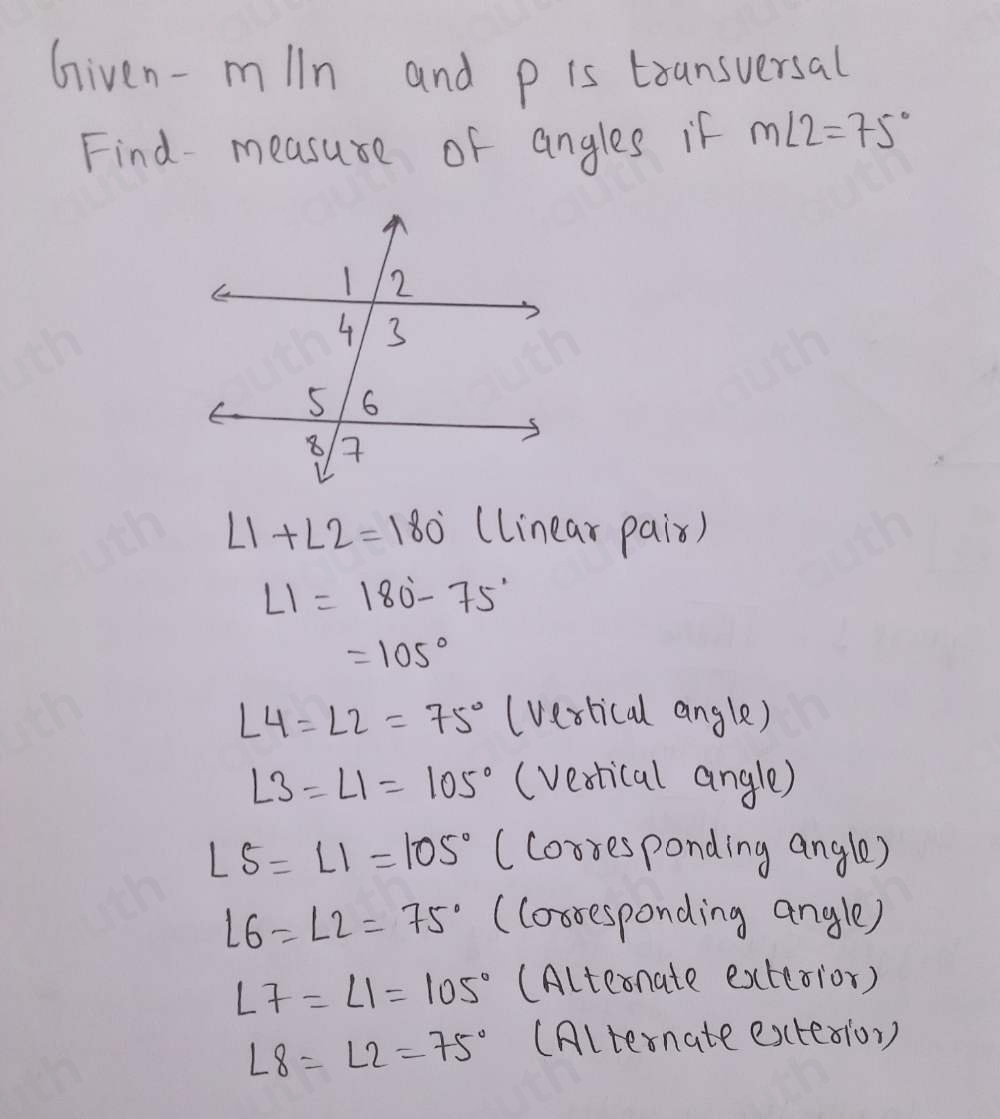 Given - m ll n and p is transversal
Find - measure of angles if m∠2=75°
1 2
4 3
5 6
8 7
∠1 + ∠2 = 180° (linear pair)
∠1 = 180° - 75°
= 105°
∠4 = ∠2 = 75° (Vertical angle)
∠3 = ∠1 = 105° (Vertical angle)
∠5 = ∠1 = 105° (Corresponding angle)
∠6 = ∠2 = 75° (Corresponding angle)
∠7 = ∠1 = 105° (Alternate exterior)
∠8 = ∠2 = 75° (Alternate exterior)